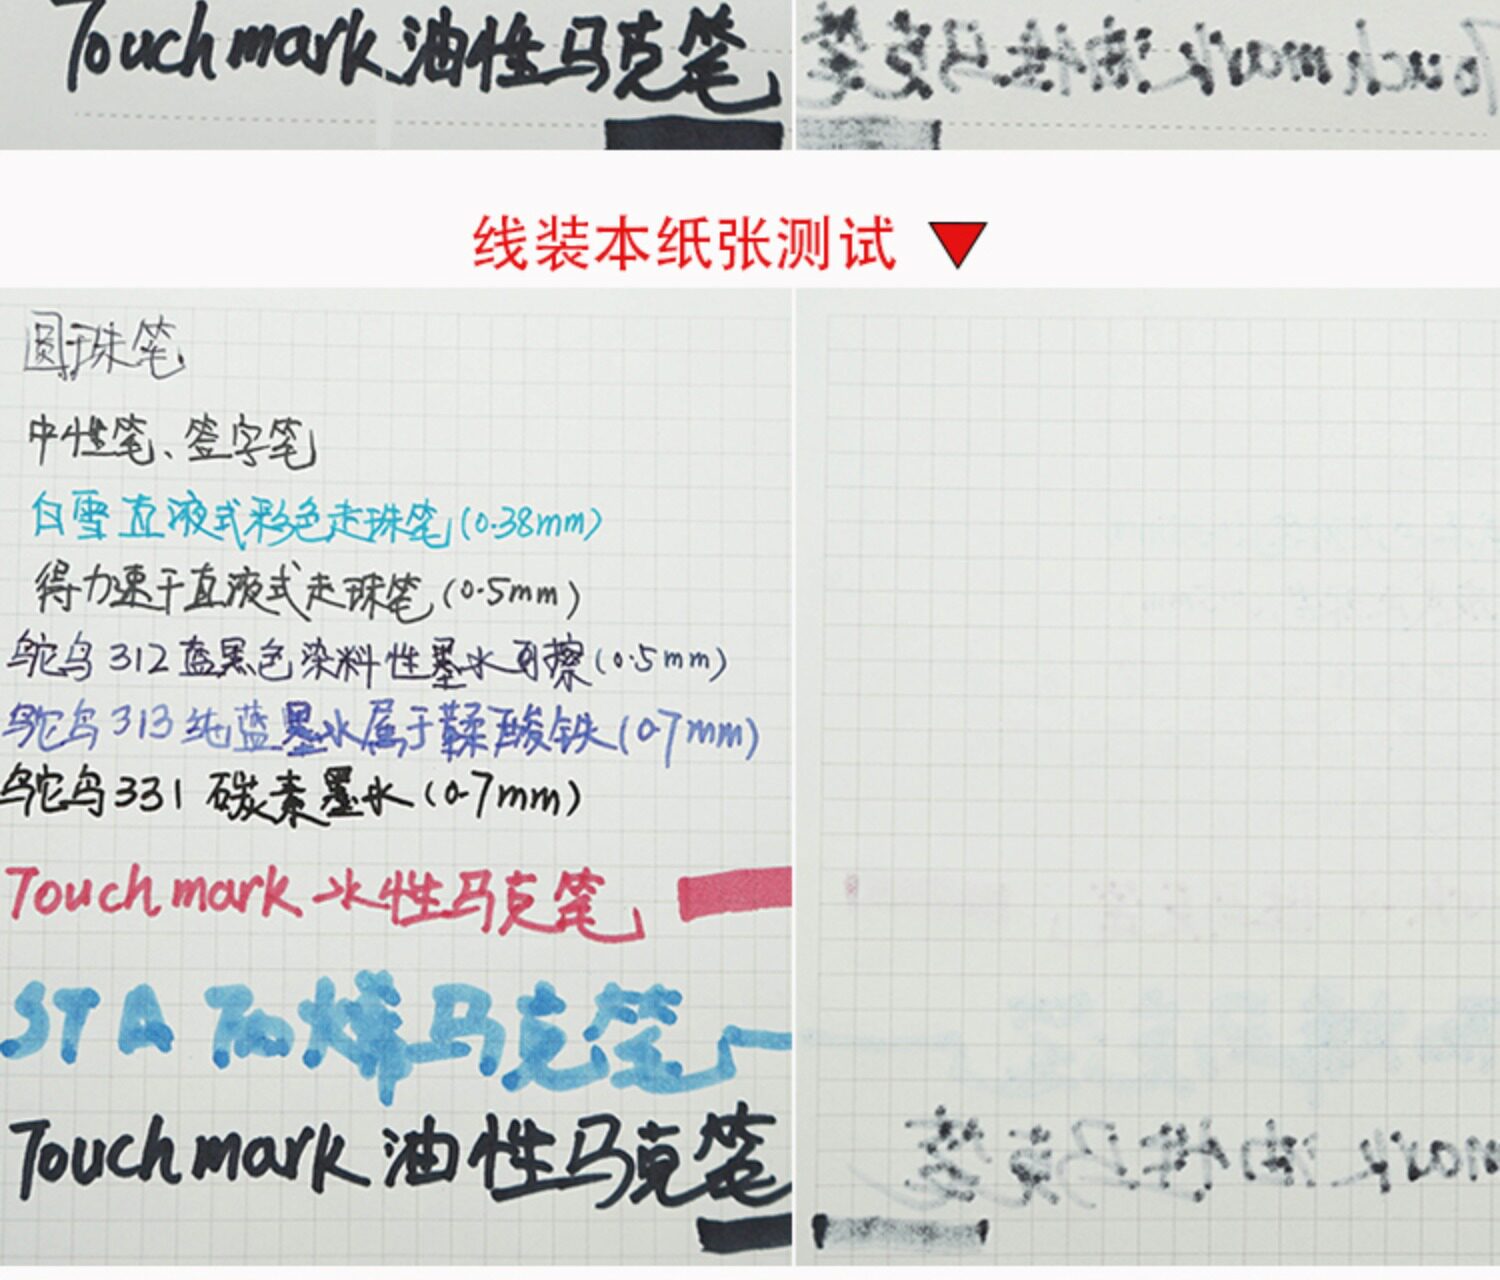 Touch mark 油性马克笔
线装本纸张测试
圆珠笔
中性笔、签字笔
白雪直液式彩色走珠笔(0.38mm)
得力速干直液式走珠笔(0.5mm)
鸵鸟312蓝黑色染料性墨水可擦(0.5mm)
鸵鸟313纯蓝墨水属于鞣酸铁(0.7mm)
鸵鸟331碳素墨水(0.7mm)
Touch mark 水性马克笔
STA 马克笔
Touch mark 油性马克笔